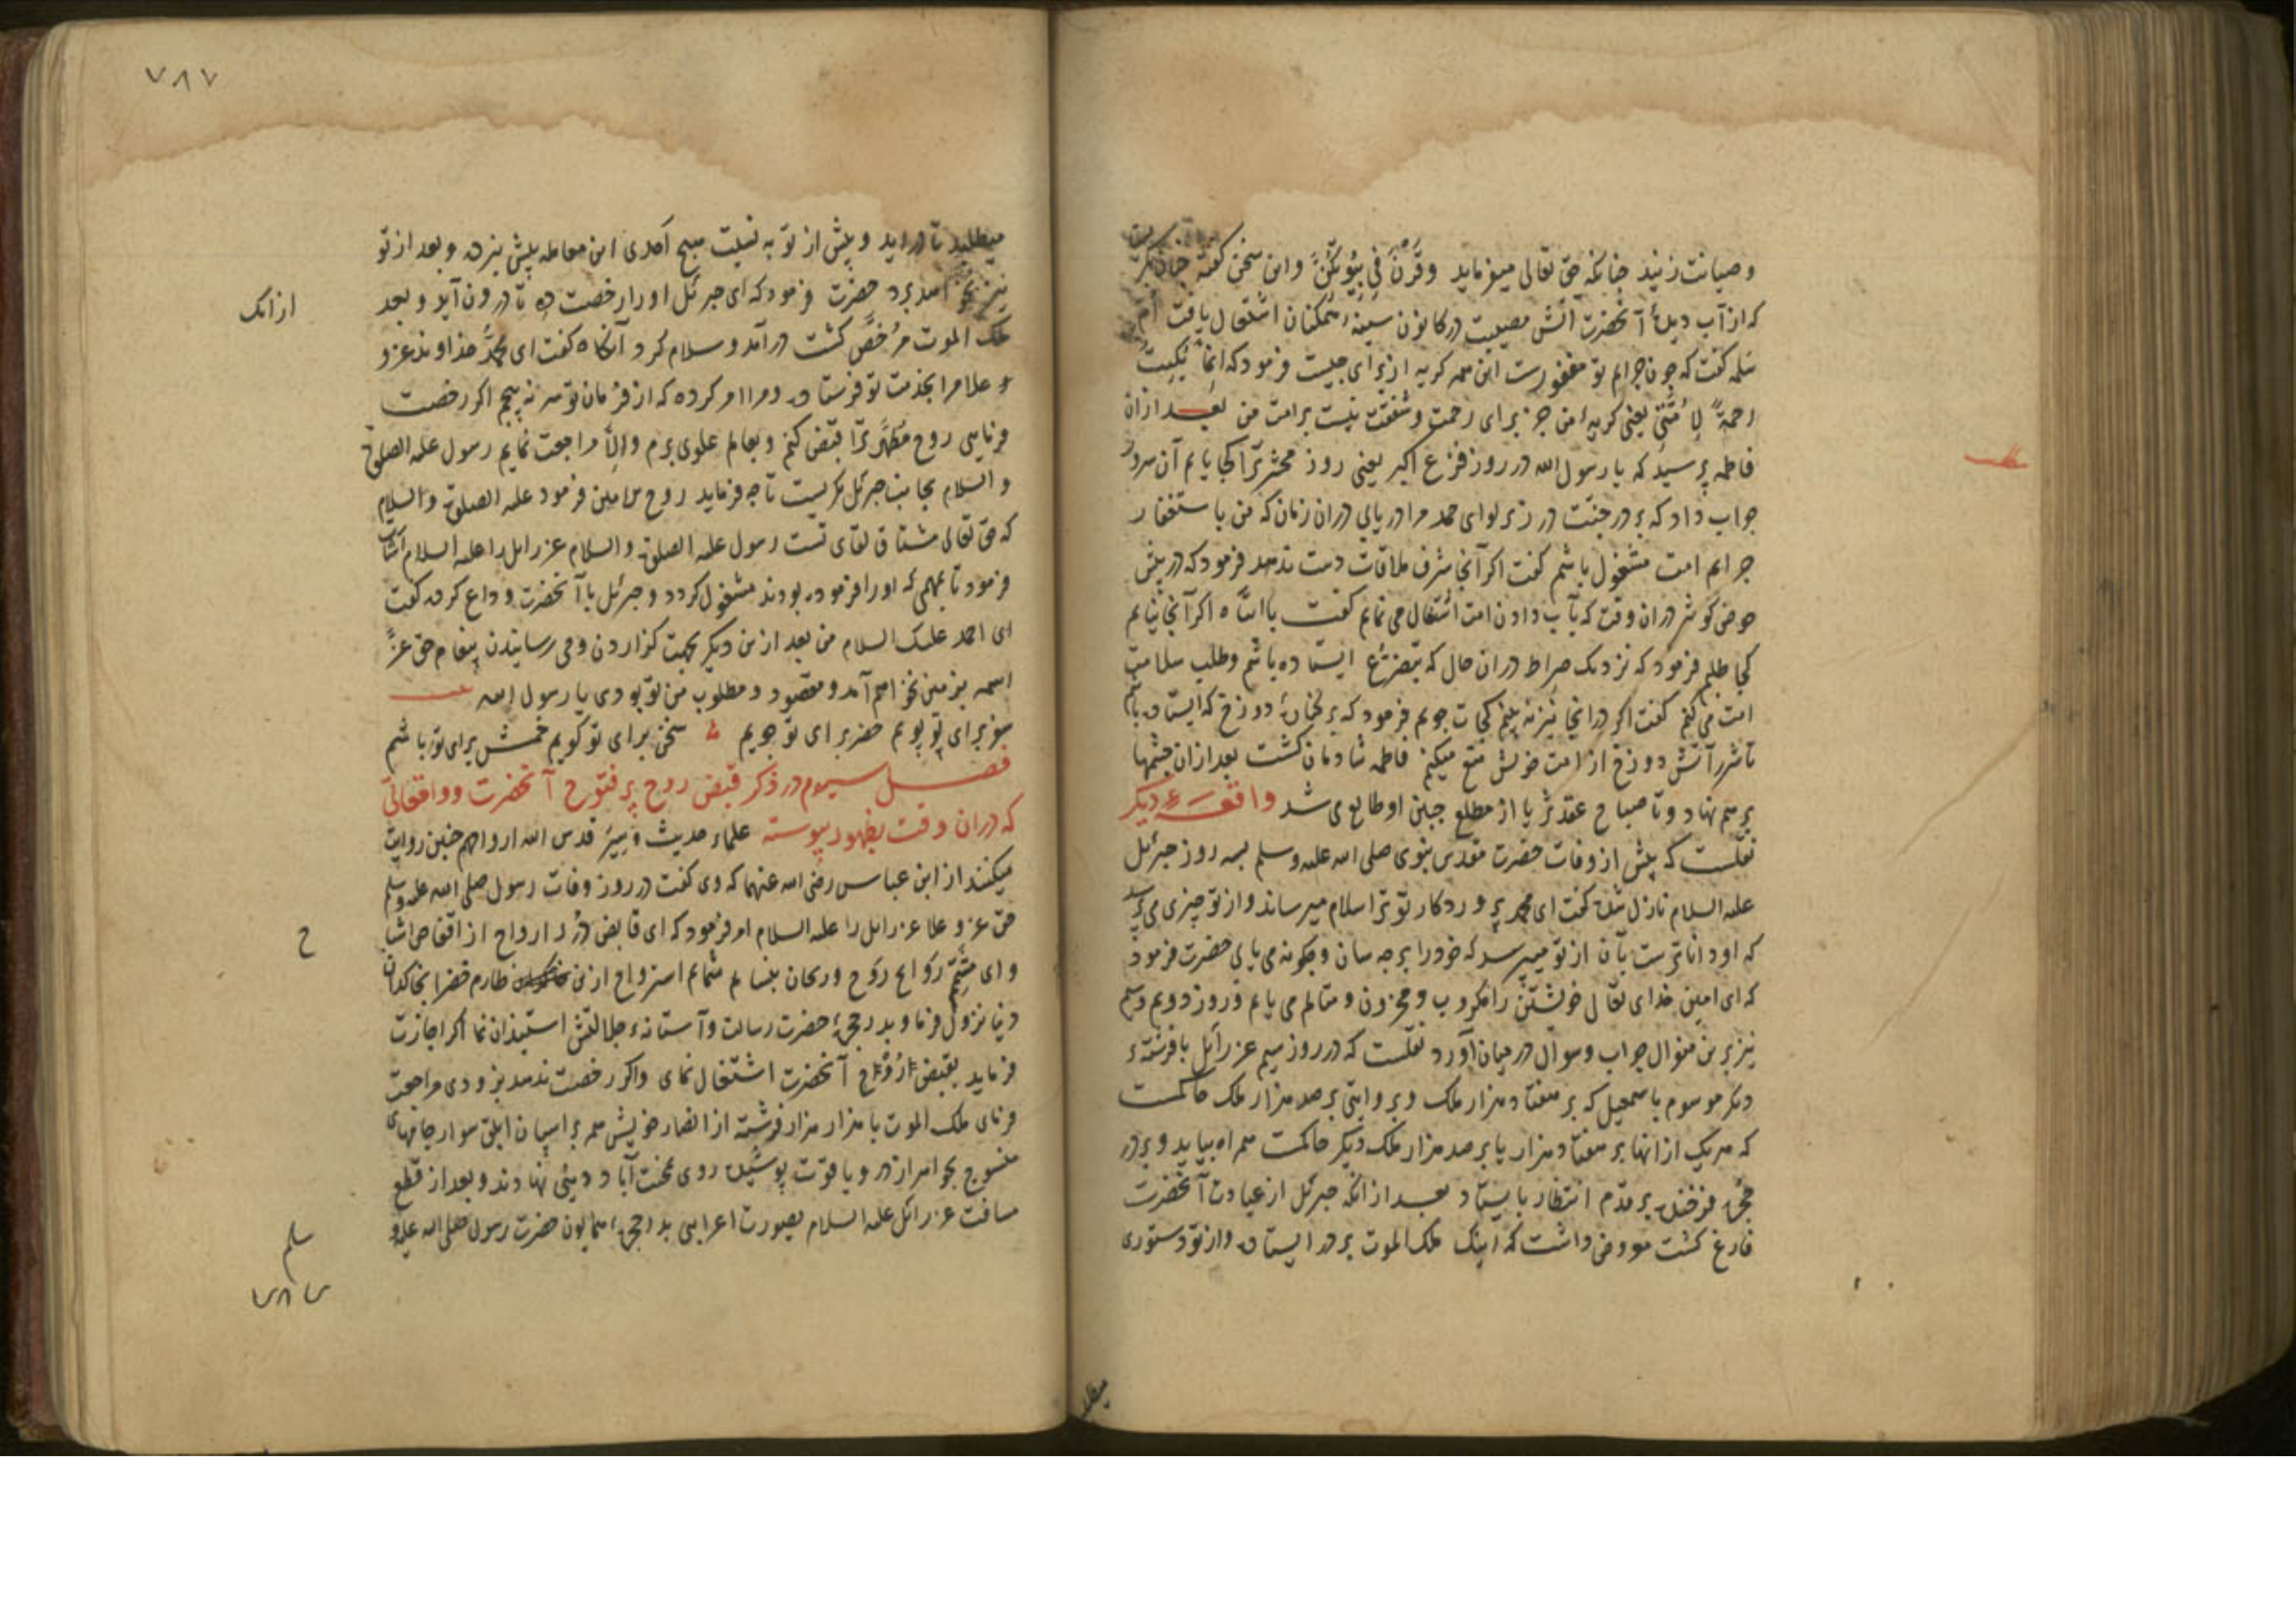 و صیانت زنید چنانکه حق تعالی میفرماید وقرن فی بیوتکن و این سخن گفته چنان بگریست
که از آب دیدهٔ آنحضرت آتش مصیبت در کانون سینهٔ متمکنان اشتعال یافت ام
سلمه گفت که چون جرایم تو مغفورست این همه گریه از برای چیست فرمود که انما بکیت
رحمةً لِاُمّتی یعنی گریهٔ من جز برای رحمت و شفقت نیست بر امت من بعد ازان
فاطمه پرسید که یا رسول الله در روز فزع اکبر یعنی روز محشر ترا کجا یابم آن سرور
جواب داد که بر در جنت در زیر لوای حمد مرا دریابی دران زمان که من باستغفار
جرایم امت مشغول باشم گفت اگر آنجا شرف ملاقات دست ندهد فرمود که در پیش
حوض کوثر دران وقت که بآب دادن امت اشتغال می نمایم گفت یا ابتاه اگر آنجا نیابم
کجا طلبم فرمود که نزدیک صراط دران حال که بتضرّع ایستاده باشم و طلب سلامت
امت می کنم گفت اگر در انجا نیز نه بینم کجات جویم فرمود که بر کنارهٔ دوزخ که ایستاده باشم
تا شرر آتش دوزخ از امت خویش منع میکنم فاطمه شادمان گشت بعد ازان چشمها
بر هم نهاد و تا صباح عقد ثریا از مطلع جبین او طالع می شد واقعهٔ دیگر
نقلست که پیش از وفات حضرت مقدس نبوی صلی الله علیه وسلم بسه روز جبرئل
علیه السلام نازل شده گفت ای محمد پروردگار تو ترا سلام میرساند و از تو چیزی می پرسد
که او داناترست بآن از تو میپرسد که خود را بر چه سان و چگونه می یابی حضرت فرمود
که ای امین خدای تعالی خویشتن را مکروب و محزون و متالم می یابم و روز دویم و سیم
نیز برین منوال جواب و سوال در میان آورد نقلست که در روز سیم عزرائل با فرشتهٔ
دیگر موسوم باسمعیل که بر هفتاد هزار ملک و بروایتی بر صد هزار ملک حاکمست
که هر یک ازانها بر هفتاد هزار یا بر صد هزار ملک دیگر حاکمست همراه بیاید و بر در
حجرهٔ فرخنده بر قدم انتظار بایستاد بعد ازانکه جبرئل از عیادت آنحضرت
فارغ گشت معروض داشت که اینک ملک الموت بر در ایستاده و از تو دستوری
میطلبد
۷۸۷
میطلبد تا در آید و پیش از تو به نسبت هیچ احدی این معامله پیش نبرده و بعد از تو
نیز نخواهد برد حضرت فرمود که ای جبرئل او را رخصت ده تا درون آید و بعد
ازانک
ملک الموت مرخّص گشت درآمد و سلام کرد آنگاه گفت ای محمّد خداوند عز و
و علا مرا بخدمت تو فرستاده و مرا امر کرده که از فرمان تو سر نه پیچم اگر رخصت
فرمایی روح مطهر ترا قبض کنم و بعالم علوی برم والّا مراجعت نمایم رسول علیه الصلوة
و السلام بجانب جبرئل نگریست تا چه فرماید روح الامین فرمود علیه الصلوة و السلام
که حق تعالی مشتاق لقای تست رسول علیه الصلوة و السلام عزرائل را علیه السلام اشارت
فرمود تا بمهمی که او را فرموده بودند مشغول گردد و جبرئل با آنحضرت وداع کرده گفت
ای احمد علیک السلام من بعد ازین دیگر بجهت گزاردن وحی رسانیدن پیغام حق عزّ
اسمه بزمین نخواهم آمد و مقصود و مطلوب من تو بودی یا رسول الله
سفر برای تو پویم حضر برای تو جویم سخن برای تو گویم خمش برای تو باشم
فصل سیوم در ذکر قبض روح پر فتوح آنحضرت و واقعاتی
که دران وقت بظهور پیوسته علماء حدیث و سِیَر قدس الله ارواحهم چنین روایت
میکنند از ابن عباس رضی الله عنهما که وی گفت در روز وفات رسول صلی الله علیه وسلم
حق عز و علا عزرائل را علیه السلام امر فرمود که ای قابض دُرر ارواح از اقفاص اشبا
ح
و ای مشمّم روایح رَوح و ریحان بمشام استرواح ازین طارم خضرا بخاکدان
دنیا نزول فرما و بدر حجرهٔ حضرت رسالت و آستانهٔ جلالتش استیذان نما اگر اجازت
فرماید بقبض روح آنحضرت اشتغال نمای و اگر رخصت ندهد بزودی مراجعت
فرمای ملک الموت با هزار هزار فرشته از انصار خویش همه بر اسپان ابلق سوار جامهای
منسوج بجواهر از در و یاقوت پوشیده روی بمحنت آباد دنیی نهادند و بعد از قطع
مسافت عزرائل علیه السلام بصورت اعرابی بدر حجرهٔ همایون حضرت رسول صلی الله علیه و
سلم
۷۸۷